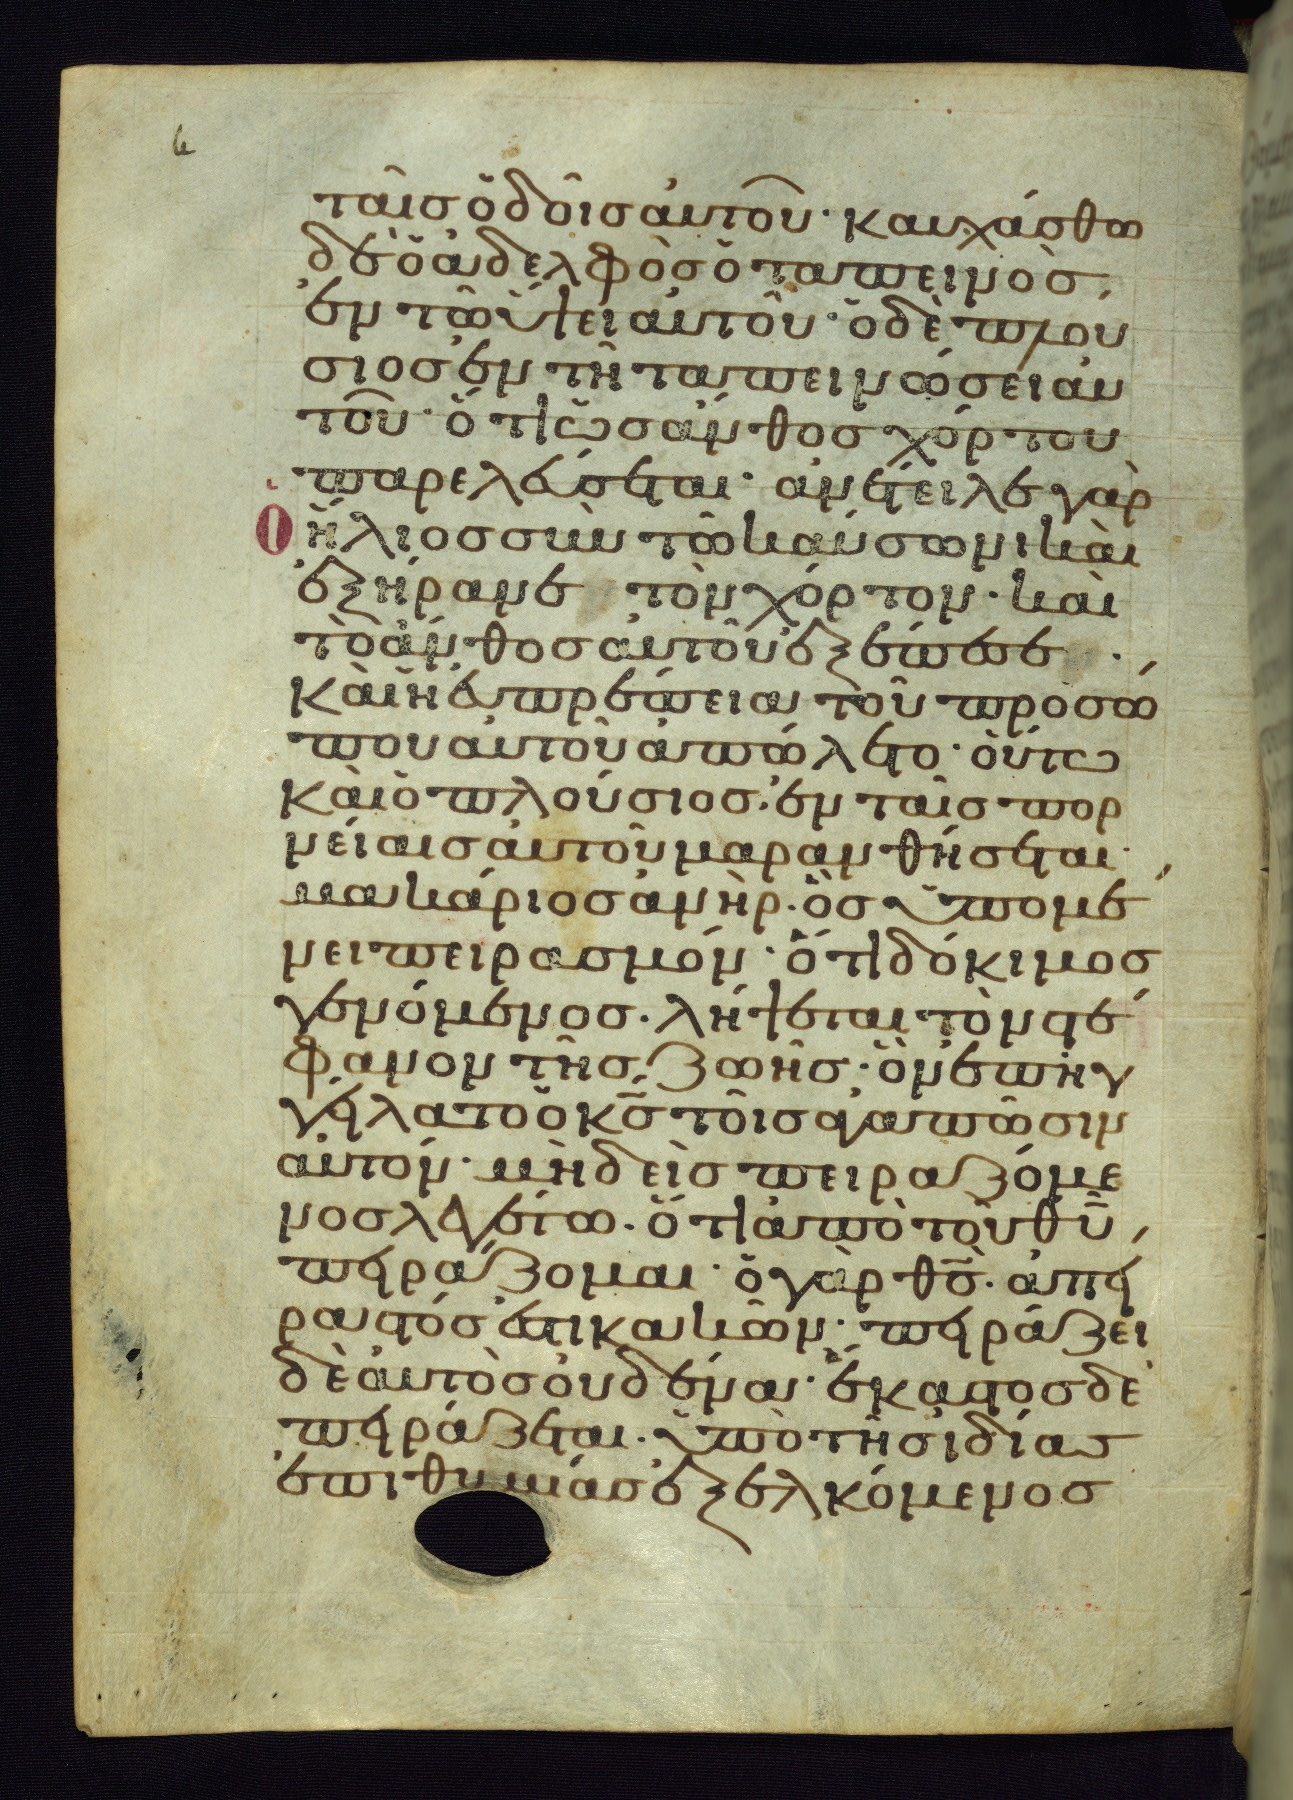 ταῖς ὁδοῖς αὐτοῦ· καυχάσθω
δὲ ὁ ἀδελφὸς ὁ ταπεινὸς,
ἐν τῶ ὕψει αὐτοῦ· ὁ δὲ πλου
σιος ἐν τῆ ταπεινώσει αὐ
τοῦ· ὅτι ὡς ἄνθος χόρτου
παρελεύσεται· ἀνέτειλε γὰρ
Ὁ ἥλιος σὺν τῶ καύσωνι καὶ
ἐξήρανε τὸν χόρτον· καὶ
τὸ ἄνθος αὐτοῦ ἐξέπεσε·
καὶ ἡ εὐπρέπεια τοῦ προσώ
που αὐτοῦ ἀπώλετο· οὕτω
καὶ ὁ πλούσιος· ἐν ταῖς πορ
νείαις αὐτοῦ μαρανθήσεται·
μακάριος ἀνὴρ· ὃς ὑπομέ
νει πειρασμόν· ὅτι δόκιμος
γενόμενος· λήψεται τὸν στέ
φανον τῆς ζωῆς· ὃν ἐπηγ
γείλατο ὁ κς τοῖς ἀγαπῶσιν
αὐτόν· μὴδεὶς πειραζόμε
νος λεγέτω· ὅτι ἀπὸ τοῦ θυ,
πειράζομαι· ὁ γὰρ θς· ἀπεί
ραστός ἐστι κακῶν· πειράζει
δὲ αὐτὸς οὐδένα· ἕκαστος δὲ
πειράζεται· ὑπὸ τῆς ἰδίας
ἐπιθυμίας ἐξελκόμενος